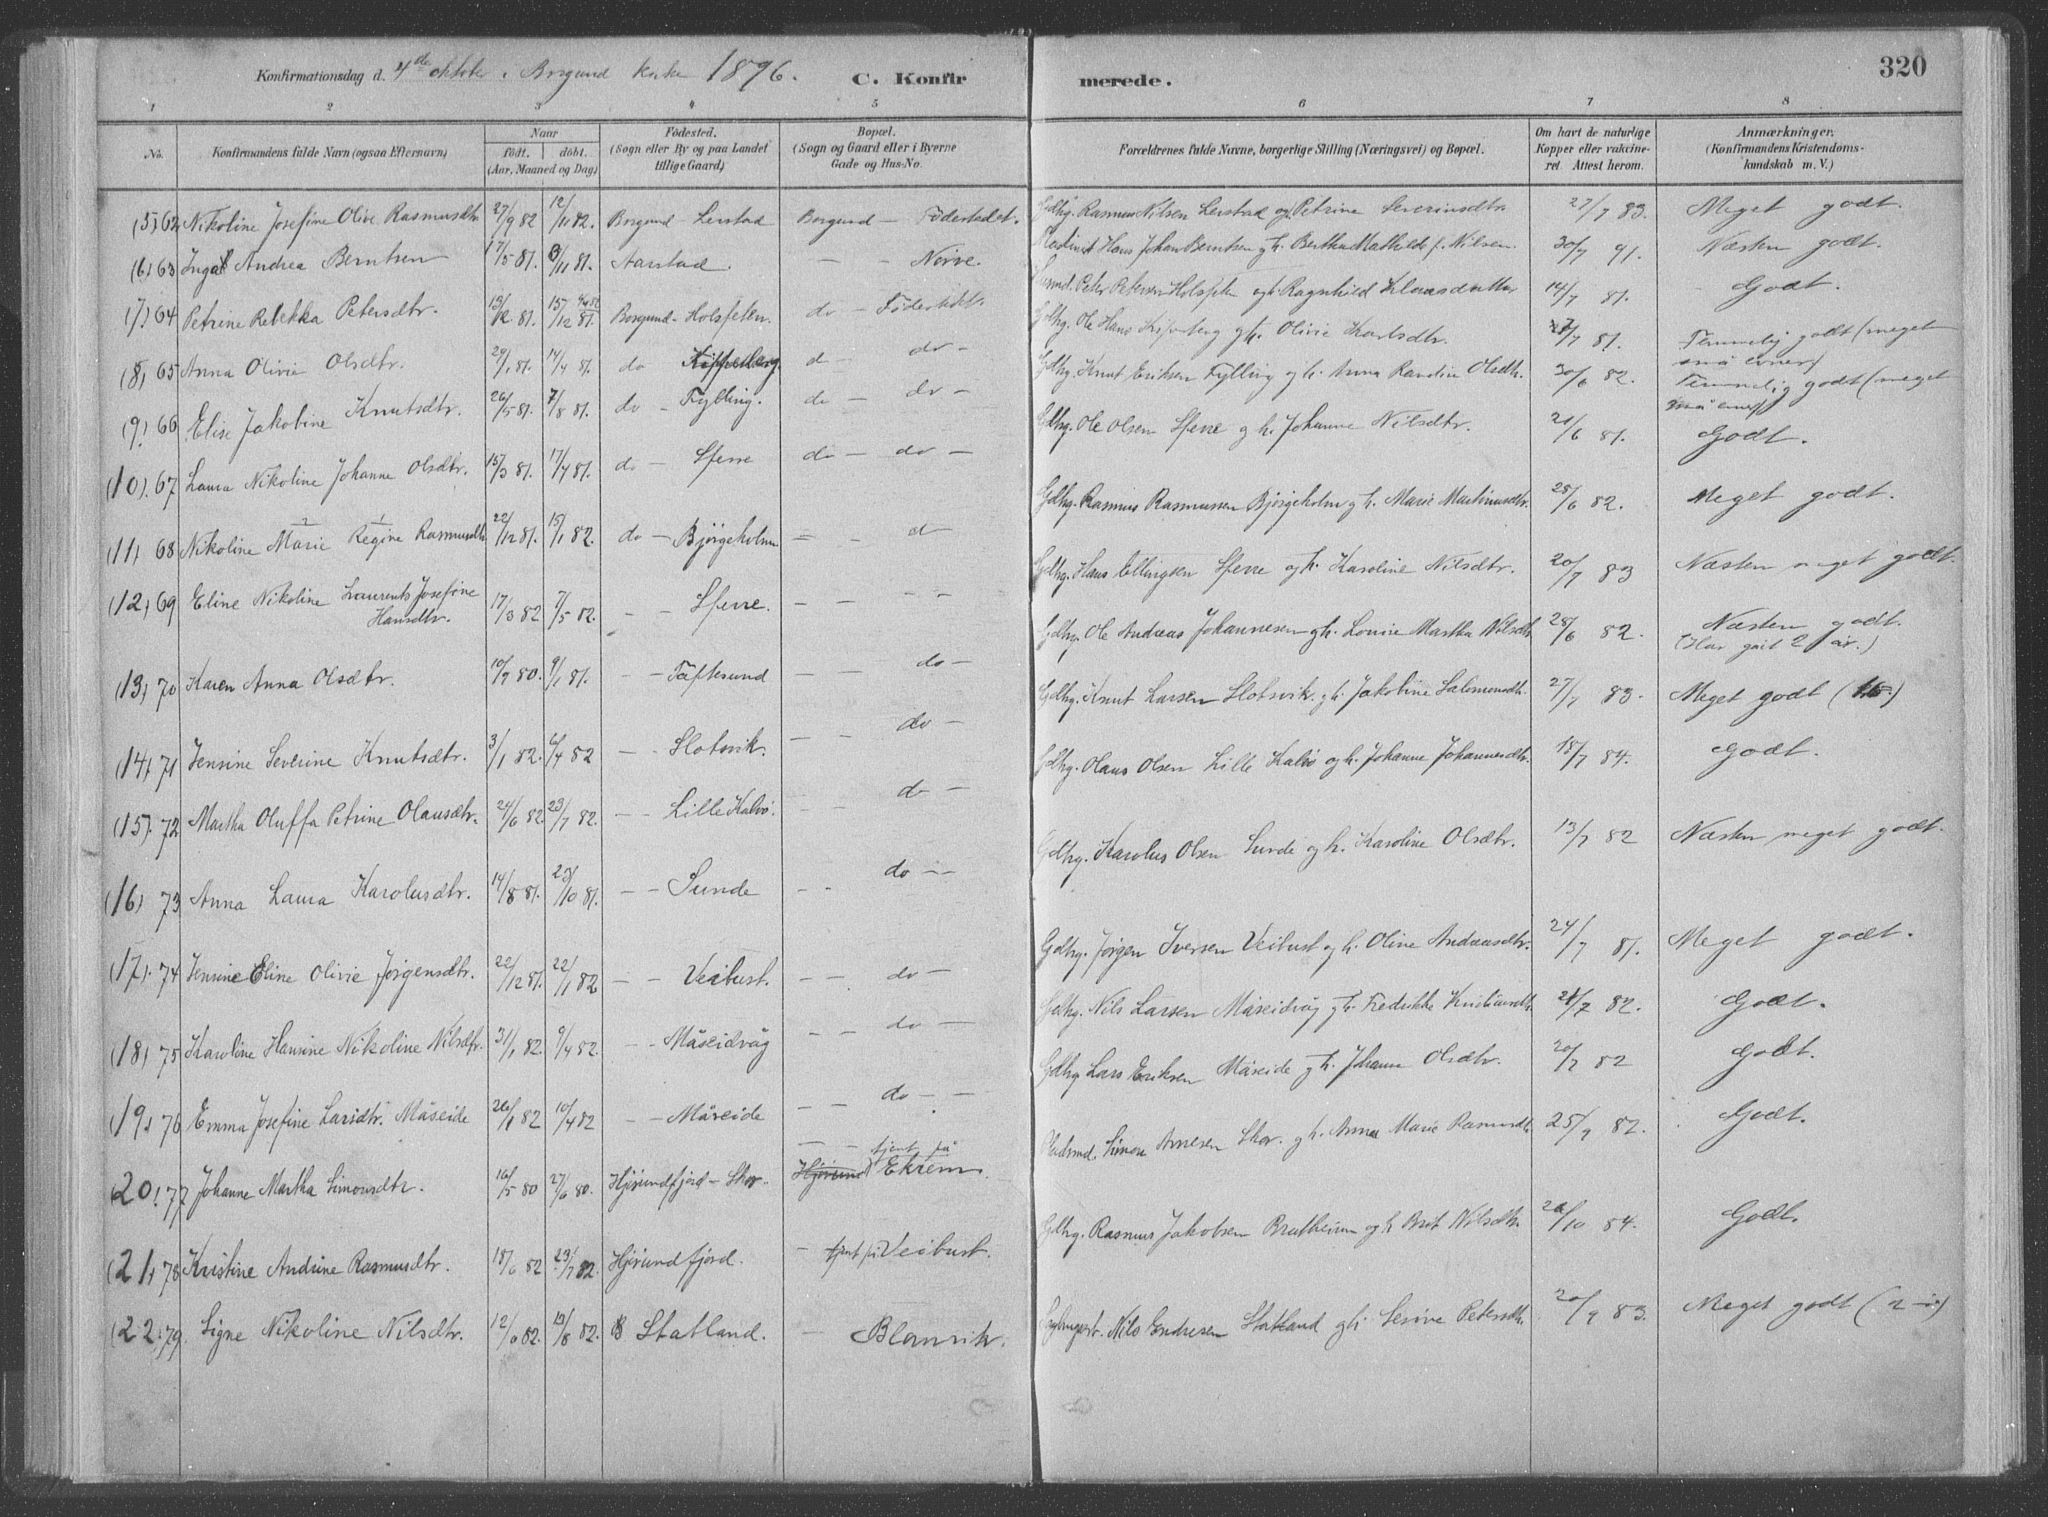 Konfirmationsdag d. 4de oktober i Borgund kirke 1896. C. Konfirmerede. 320
1 2 3 4 5 6 7 8
No. Konfirmandens fulde Navn (ogsaa Efternavn) Naar født. døbt. (Aar, Maaned og Dag) Fødested. (Sogn eller By og paa Landet tillige Gaard) Bopæl. (Sogn og Gaard eller i Byerne Gade og Hus-No. Forældrenes fulde Navne, borgerlige Stilling (Næringsvei) og Bopæl. Om havt de naturlige Kopper eller vakcineret. Attest herom. Anmærkninger. (Konfirmandens Kristendomskundskab m. V.)
(5) 62 Nikoline Josefine Olive Rasmusdtr 27/9 82 12/11 82. Borgund - Lerstad Borgund - Fødestedet. Gdbg. Rasmus Nilsen Lerstad og Petrine Severinsdtr. 27/7 83. Meget godt.
(6) 63 Andrea Berntsen 17/5 81. 3/11 81. Aarstad. - - Nørve. Hans Johan Berntsen gh. Bertha Mathilde f. Nilsen. 30/7 91. Næsten godt.
(7) 64 Petrine Rebekka Petersdtr. 13/12 81. Borgund - Holsfeten. do - Fødestedet. Peter Petersen Holsfeten gh. Ragnhild Klaasdatter 14/7 81. Godt.
(8) 65 Anna Olivie Olsdtr. 29/1 81. 14/4 81. do d - do - Gdbg. Ole Hans gh. Olivie Karlsdtr. /7 81. Temmelig godt (meget små evner)
(9) 66 Elise Jakobine Knutsdtr. 26/5 81. 7/8 81. do - Fylling. do - do - Gdbg. Knut Eriksen Fylling gh. Anna Karoline Olsdtr. 30/6 82. Temmelig godt (meget små evner)
(10) 67 Laura Nikoline Johanne Olsdtr. 15/3 81. 17/4 81. do - Sperre do - do - Gdbg. Ole Olsen Sperre gh. Johanne Nilsdtr. 21/6 81. Godt.
(11) 68 Nikoline Marie Regine Rasmusdtr. 22/12 81. 15/1 82. do - Bjørgeholm - - d - Gdbg. Rasmus Rasmussen Bjørgeholm gh. Marie Martinusdtr. 28/6 82. Meget godt.
(12) 69 Eline Nikoline Laurents Josefine Hansdtr. 17/3 82 7/5 82. - - Sperre. - - - - Gdbg. Hans Ellingsen Sperre ogh. Karoline Nilsdtr. 20/7 83 Næsten meget godt.
(13) 70 Karen Anna Olsdtr. 10/9 80. 9/1 81. - - Taftesund - - do - Gdbg. Ole Andreas Johannesen gh. Lovise Martha Nilsdtr 28/6 82. Næsten godt. (Har gåit 2 år.)
(14) 71 Jensine Severine Knutsdtr. 3/1 82. 6/4 82 - - Slotsvik. - - do - Gdbg. Knut Larsen Slotsvik. gh. Jakobine Salomonsdtr. 27/7 83. Meget godt
(15). 72 Martha Oluffa Petrine Olausdtr. 24/6 82. 23/7 82. - - Lille Kalvø. - - do - Gdbg. Olaus Olsen Lille Kalvø ogh. Johanne Johannesdtr. 18/7 84. Godt.
(16) 73 Anna Laura Karolusdtr. 14/8 81. 23/10 81. - - Sunde - - do - - Gdbg. Karolus Olsen Sunde ogh. Karoline Olsdtr. 13/7 82 Næsten meget godt.
(17). 74 Jensine Eline Olivie Jørgensdtr. 22/12 81. 22/1 82 - - Veibust. - - do - Gdbg. Jørgen Iversen Veibust ogh. Oline Andreasdtr. 24/7 81. Meget godt.
(18) 75 Karoline Hansine Nikoline Nilsdtr. 31/1 82. 9/4 82. - - Måseidvåg - - do - Gdbg. Nils Larsen Måseidvåg gh. Fredrikke Kristiansdtr. 21/7 82. Godt.
(19) 76 Emma Josefine Larsdtr. Måseide 26/1 82 10/4 82 - - Måseide - - do - - Gdbg. Lars Eriksen Måseide gh. Johanne Olsdtr. 20/7 82 Godt.
(20) 77 Johanne Martha Simonsdtr. 16/5 80 27/6 80. Hjørundfjord - Skor. Hjørund tjent på Ekrem. Simon Arnesen Skor. gh. Anna Marie Rasmusdtr 25/9 82. Godt.
(21) 78 Kristine Andrine Rasmusdtr. 18/6 82 23/7 82. Hjørundfjord. - tjent på Veibust. Gdbg. Rasmus Jakobsen Brutheim ogh Brit Nilsdtr. /10 84. Godt.
(22) 79 Signe Nikoline Nilsdtr. 12/6 82. 13/8 82. Statland. - Blomvik. Nils Endresen Statland gh. Serine Petersdtr. 20/9 83. Meget godt